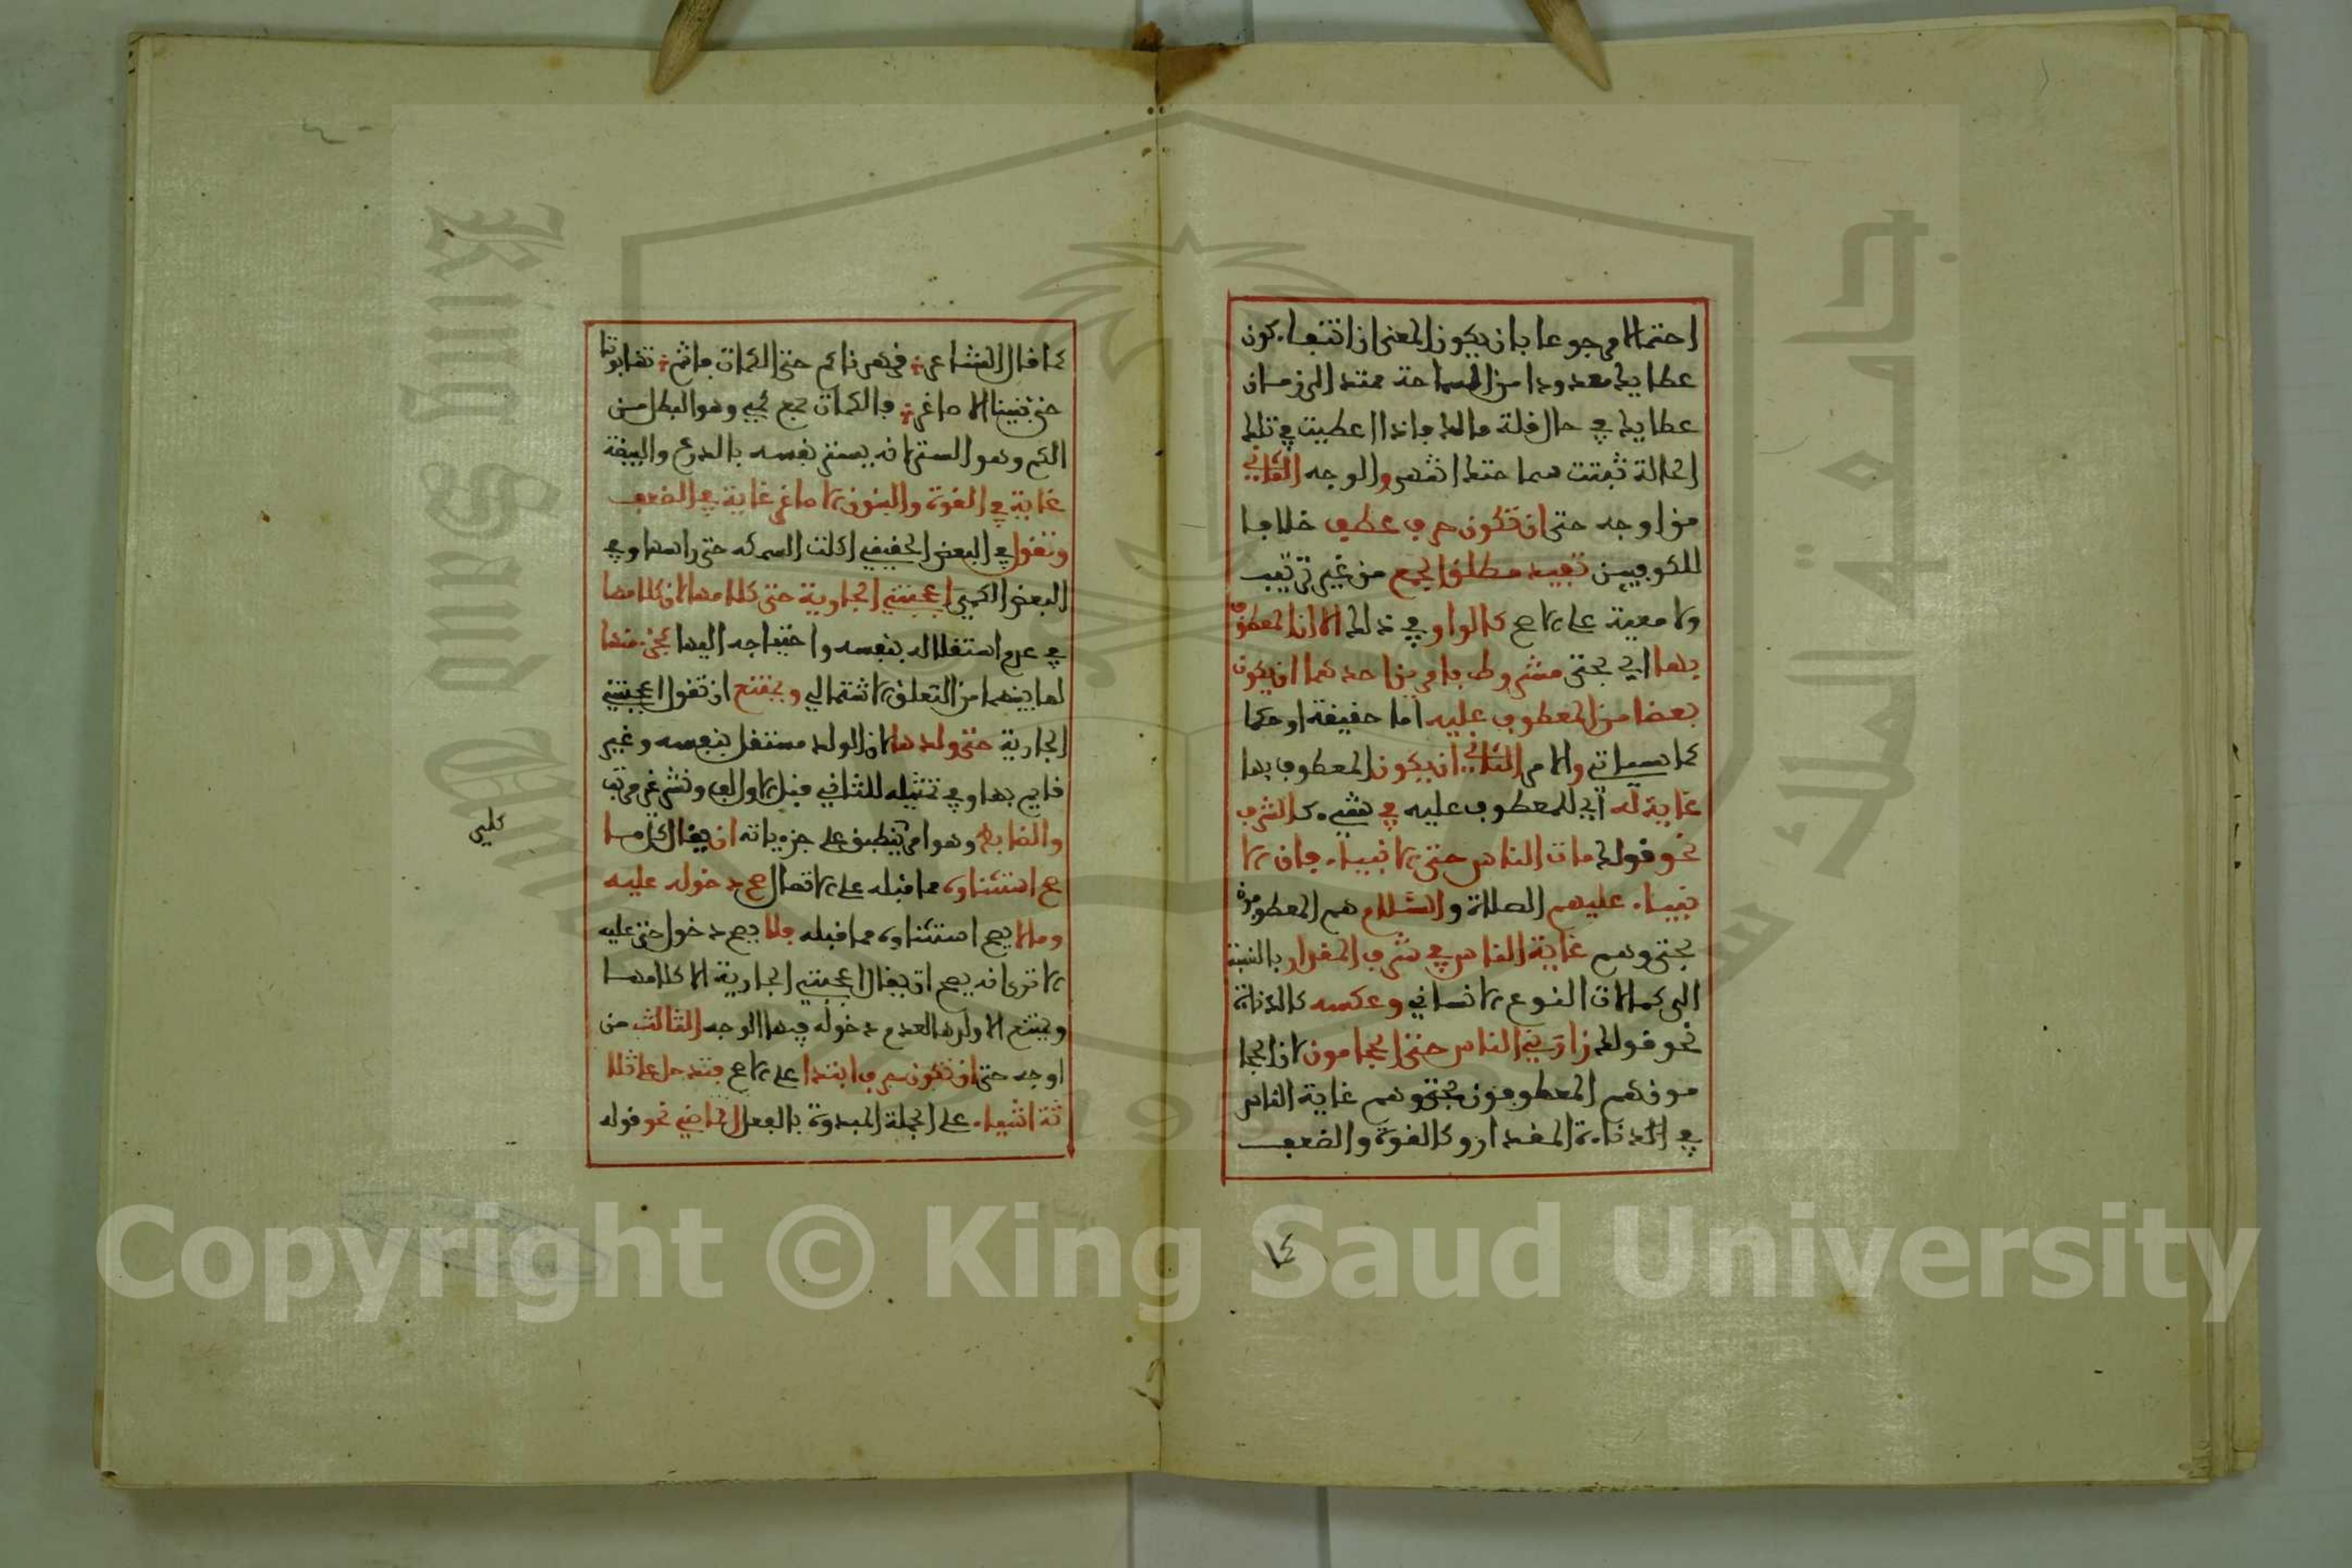 احتمالا مرجوعا بان يكون المعنى ان انتفاء كون
عطايك معدودا من السماحة ممتد الى زمان
عطايك في حال قلة مالك فاذا اعطيت في تلك
الحالة ثبتت سماحتك انتهى والوجه الثاني
من اوجه حتى ان تكون حرف عطف خلافا
للكوفيين تفيد مطلق الجمع من غير ترتيب
ولا معية على الاصح كالواو في ذلك الا ان المعطوف
بها اي بحتى مشروط بامرين احدهما ان يكون
بعضا من المعطوف عليه اما حقيقة او حكما
كما سياتي والامر الثاني ان يكون المعطوف بها
غاية له اي للمعطوف عليه في شيء كالشرف
نحو قولك مات الناس حتى الانبياء فان الا
نبياء عليهم الصلاة والسلام هم المعطوفون
بحتى وهم غاية الناس في شرف المقدار بالنسبة
الى كمالات النوع الانساني وعكسه كالدناءة
نحو قولك زارني الناس حتى الحجامون لان الحجا
مون هم المعطوفون بحتى وهم غاية الناس
في الدناءة المقدار وكالقوة والضعف
٧٤
كما قال الشاعر قهرناكم حتى الكماة فانتم تهابوننا
حتى بنينا الاصاغر فالكماة جمع كمي وهو البطل من
الكم وهو الستر لانه يستر نفسه بالدرع والبيضة
غاية في القوة والبنون الاصاغر غاية في الضعف
وتقول في البعض الحقيقي اكلت السمكه حتى راسها وفي
البعض الحكمي اعجبتني الجارية حتى كلامها لان كلامها
في عدم استقلاله بنفسه واحتياجه اليها كجزء منها
لما بينهما من التعلق الاشتمالي ويمتنع ان تقول اعجبتني
الجارية حتى ولدها لان الولد مستقل بنفسه وغير
قايم بها وفي تمثيله للثاني قبل الاول لف ونشر غير مرتب
والضابط وهو امر ينطبق على جزءياته ان يقال كل ما
كلي
صح استثناوه مما قبله على الاتصال صح دخوله عليه
وما لا يصح استثناوه مما قبله فلا يصح دخول حتى عليه
الا ترى انه يصح ان يقال اعجبتني الجارية الا كلامها
ويمتنع الا ولدها لعدم دخوله فيها الوجه الثالث من
اوجه حتى ان تكون حرف ابتدا على الاصح فتدخل على ثلا
ثة اشياء على الجملة المبدوة بالفعل الماضي نحو قوله
Copyright © King Saud University
King Saud University
1957